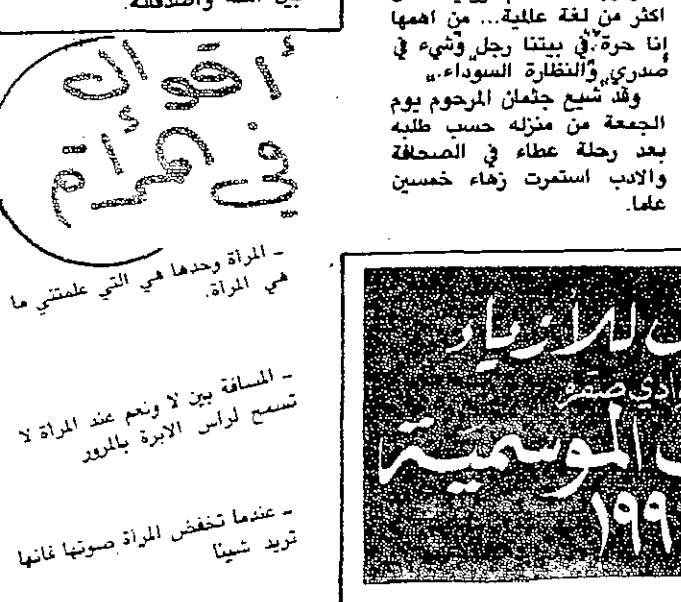 اكثر من لغة عالمية... من اهمها
إنا حرة، في بيتنا رجل وشيء في
صدري والنظارة السوداء.
وقد شيع جثمان المرحوم يوم
الجمعة من منزله حسب طلبه
بعد رحلة عطاء في الصحافة
والادب استمرت زهاء خمسين
علما.
أقوال
في امرأة
ـ المرأة وحدها هي التي علمتني ما
هي المرأة.
ـ المسافة بين لا ونعم عند المراة لا
تسمح لراس الابرة بالمرور
ـ عندما تخفض المرأة صوتها فانها
تريد شيئا
للازياء
الموسمية
١٩٩